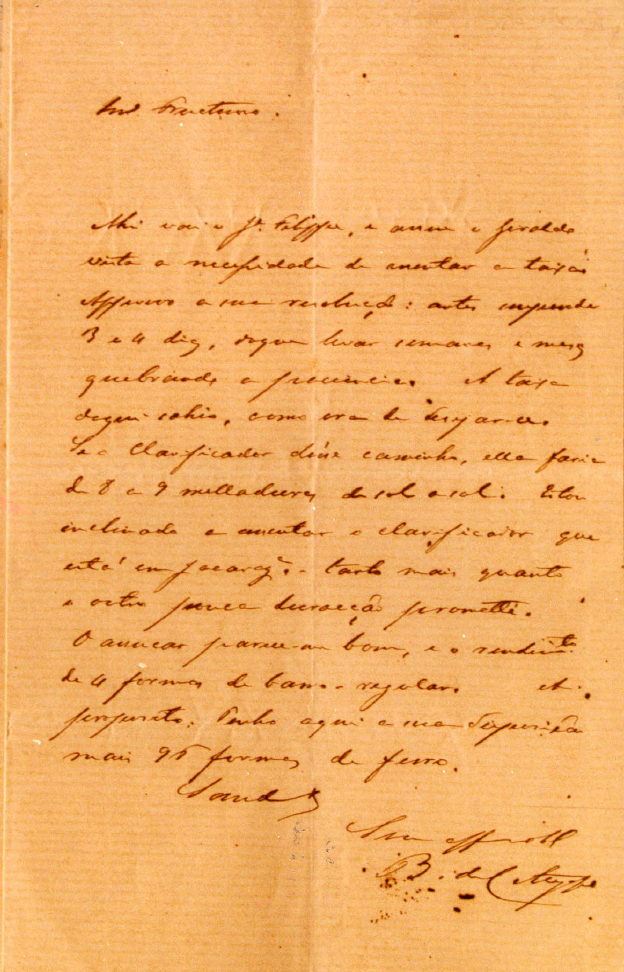 Snr Fructuoso.
Ahi vai o Je. Felippe, e assim o Geraldo
vista a necessidade de assentar a taixa
Approvo a sua resolução: antes suspender
3 e 4 dias, do que levar semanas e mezes
quebrando a paciencia. A taixa
d'aqui sahio, como era de
Se o Clarificador désse caminho, ella faria
de 8 a 9 melladuras de sol a sol. Estou
inclinado a assentar o clarificador que
está em Jacaracª. - tanto mais quanto
o outro pouca duracção promette.
O assucar parece-me bom, e o rendimto
de 4 formas de barro - regular. A
proposito: Tenho aqui a sua disposição
mais 95 formas de ferro.
Saude
Seu
B. de Cotegipe